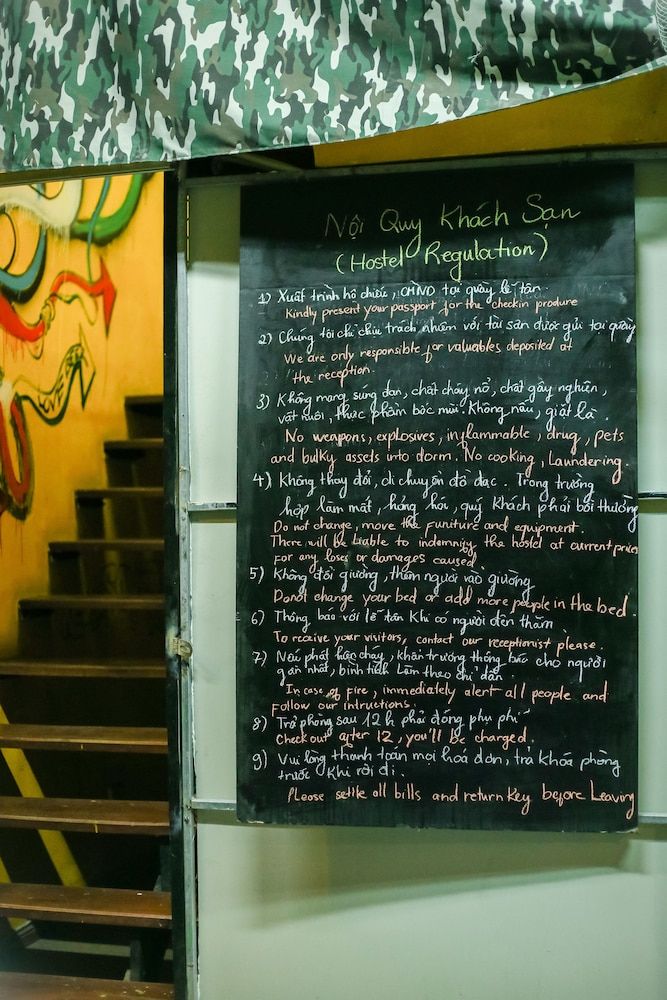 Nội Quy Khách Sạn
(Hostel Regulation)
1) Xuất trình hộ chiếu, CMND tại quầy lễ tân.
Kindly present your passport for the checkin produre
2) Chúng tôi chỉ chịu trách nhiệm với tài sản được gửi tại quầy
We are only responsible for valuables deposited at
the reception.
3) Không mang súng đạn, chất cháy nổ, chất gây nghiện,
vật nuôi, thực phẩm bốc mùi. Không nấu, giặt là.
No weapons, explosives, inflammable, drug, pets
and bulky assets into dorm. No cooking, Laundering.
4) Không thay đổi, di chuyển đồ đạc. Trong trường
hợp làm mất, hỏng hóc, quý khách phải bồi thường
Do not change, move the funiture and equipment.
There will be liable to indemnify the hostel at current prices
For any loses or damages caused
5) Không đổi giường, thêm người vào giường
Donot change your bed or add more people in the bed.
6) Thông báo với lễ tân khi có người đến thăm
To receive your visitors, contact our receptionist please.
7) Nếu phát hiện cháy, khẩn trương thông báo cho người
gần nhất, bình tĩnh làm theo chỉ dẫn.
In case of fire, immediately alert all people and
Follow our intructions.
8) Trả phòng sau 12h phải đóng phụ phí
Check out after 12, you'll be charged.
9) Vui lòng thanh toán mọi hoá đơn, trả khóa phòng
trước khi rời đi.
Please settle all bills and return key before Leaving